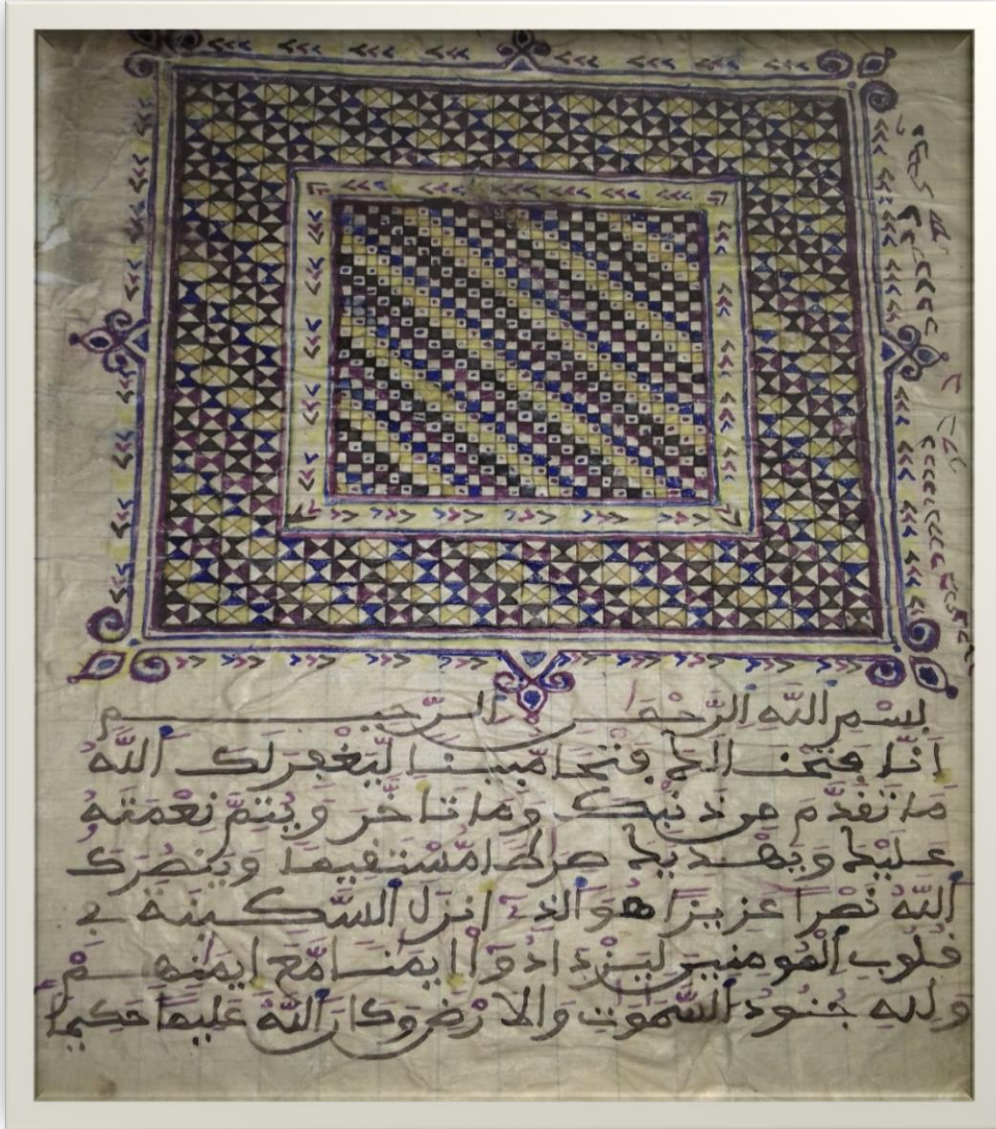 بِسْمِ اللَّهِ الرَّحْمَٰنِ الرَّحِيمِ
اِنَّا فَتَحْنَا لَكَ فَتْحاً مُّبِيناً لِّيَغْفِرَ لَكَ اَللَّهُ
مَا تَقَدَّمَ مِن ذَنۢبِكَ وَمَا تَأَخَّرَ وَيُتِمَّ نِعْمَتَهُ
عَلَيْكَ وَيَهْدِيَكَ صِرَٰطاً مُّسْتَقِيماً وَيَنصُرَكَ
اَللَّهُ نَصْراً عَزِيزاً هُوَ الَّذِے أَنزَلَ اَلسَّكِينَةَ فِے
قُلُوبِ اِلْمُومِنِينَ لِيَزْدَادُوٓاْ إِيمَٰناً مَّعَ إِيمَٰنِهِمْ
وَلِلهِ جُنُودُ اُلسَّمَٰوَٰتِ وَالَارْضِ وَكَانَ اَللَّهُ عَلِيماً حَكِيماً